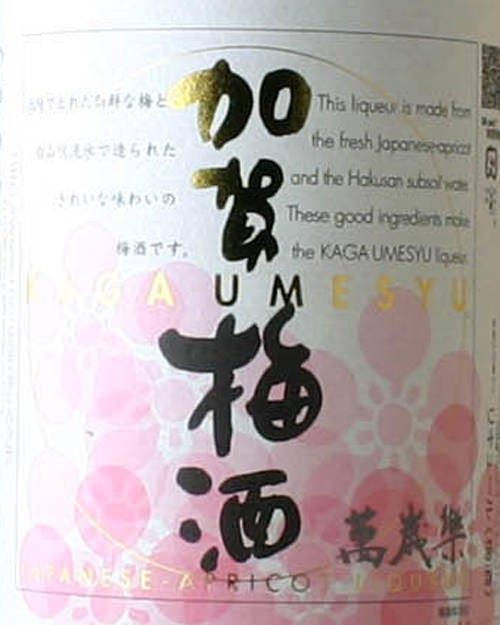 加賀梅酒
新鮮な梅と
白山伏流水で造られた
きれいな味わいの
梅酒です。
This liqueur is made from
the fresh Japanese-apricot
and the Hakusan subsoil water.
These good ingredients make
the KAGA UMESYU liqueur.
KAGA UMESYU
萬歳樂
JAPANESE-APRICOT LIQUEUR